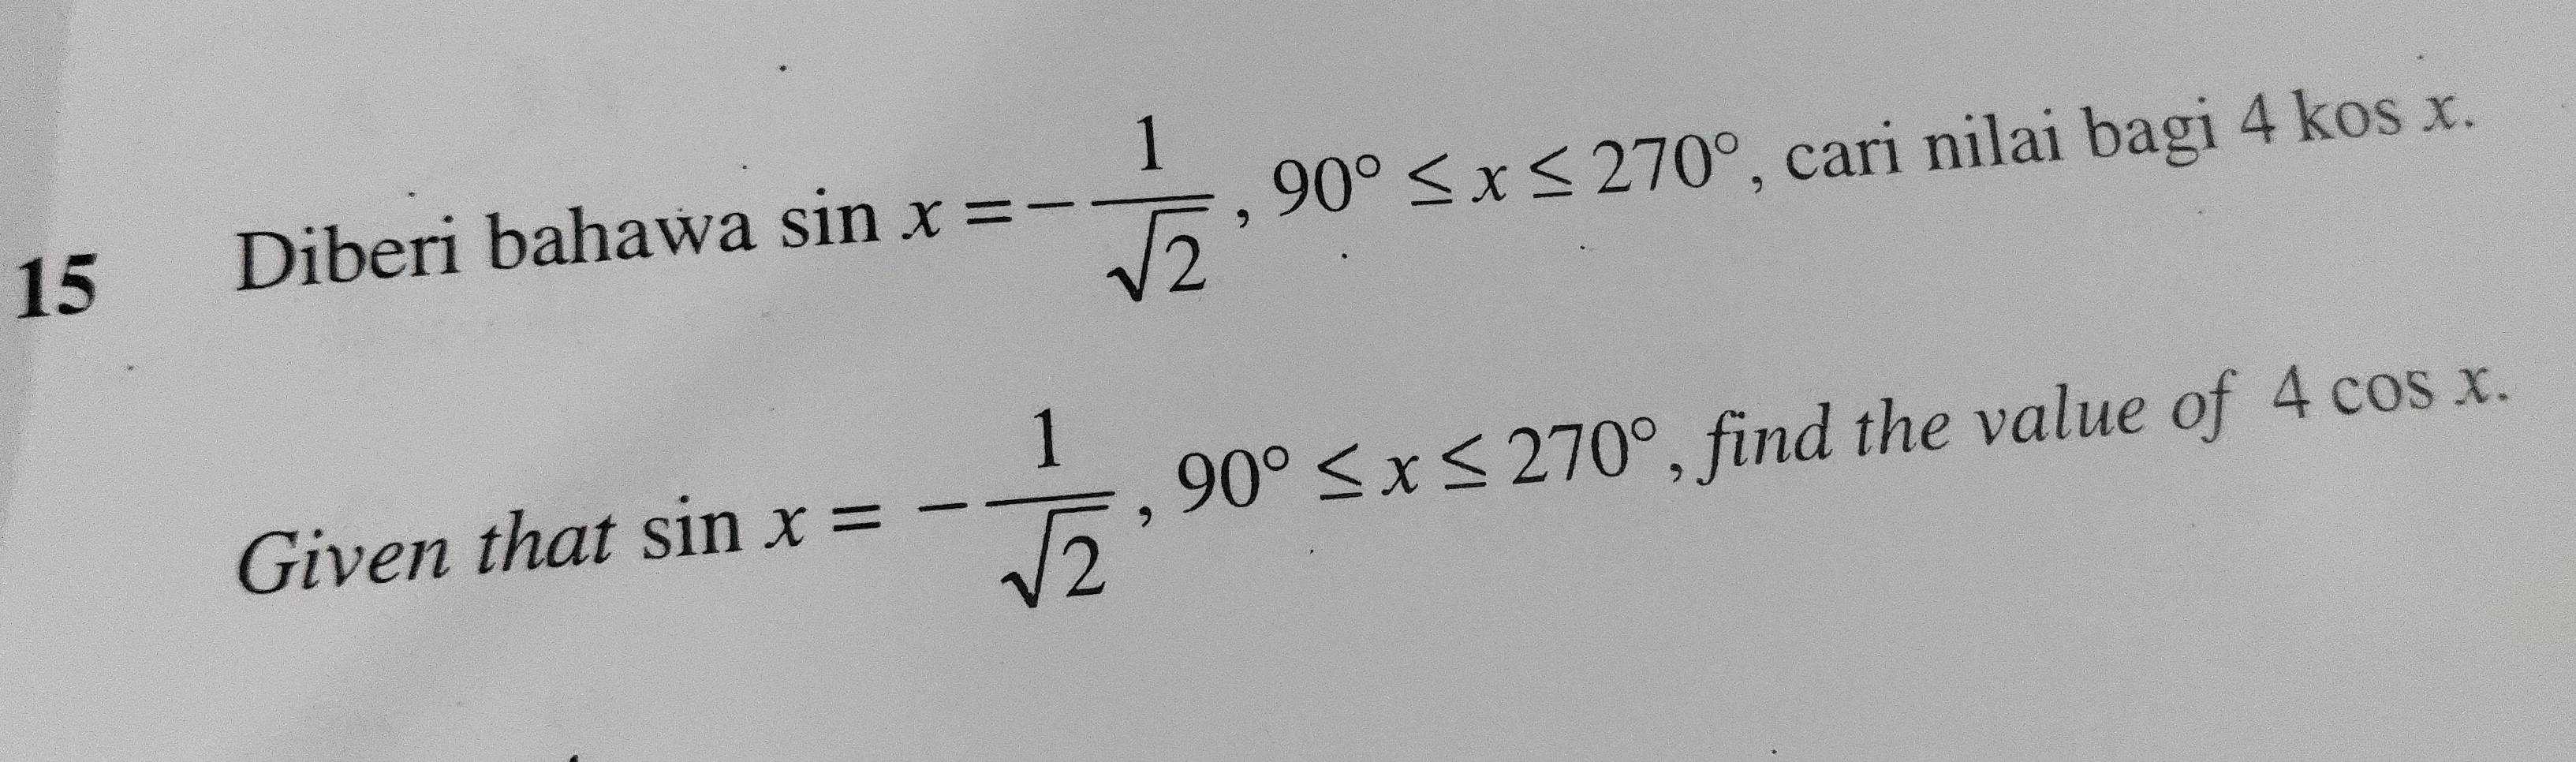 15 Diberi bahawa sin x = −1/√2, 90° ≤ x ≤ 270°, cari nilai bagi 4 kos x.
Given that sin x = −1/√2, 90° ≤ x ≤ 270°, find the value of 4 cos x.